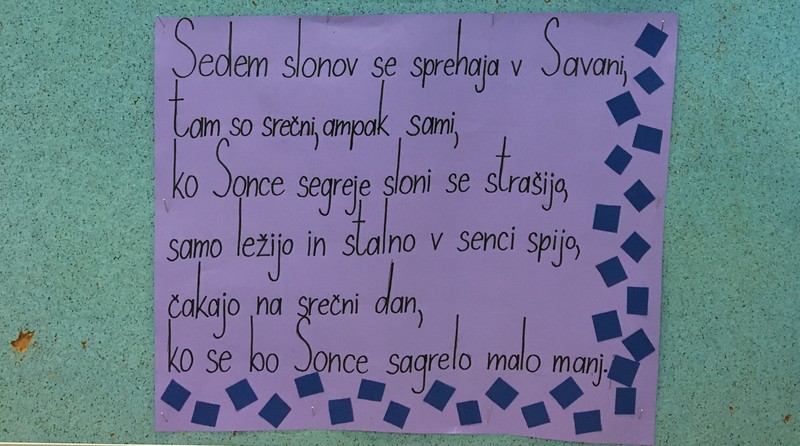 Sedem slonov se sprehaja v Savani,
tam so srečni, ampak sami,
ko Sonce segreje sloni se strašijo,
samo ležijo in stalno v senci spijo,
čakajo na srečni dan,
ko se bo Sonce sagrelo malo manj.